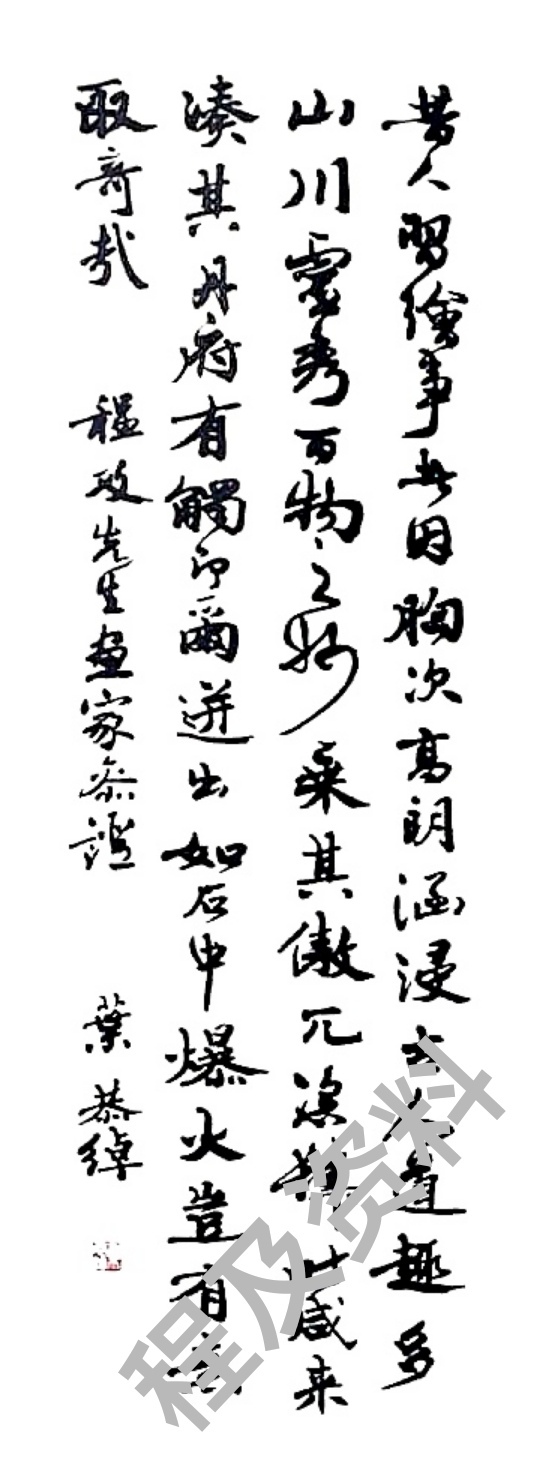 昔人習繪事因胸次高朗涵浸古人道趣多
山川靈秀百物之妙乘其傲兀咸来
湊其丹府有觸即爾迸出如石中爆火豈有意
取奇哉　程及先生畫家叅證　葉恭綽
程及资料